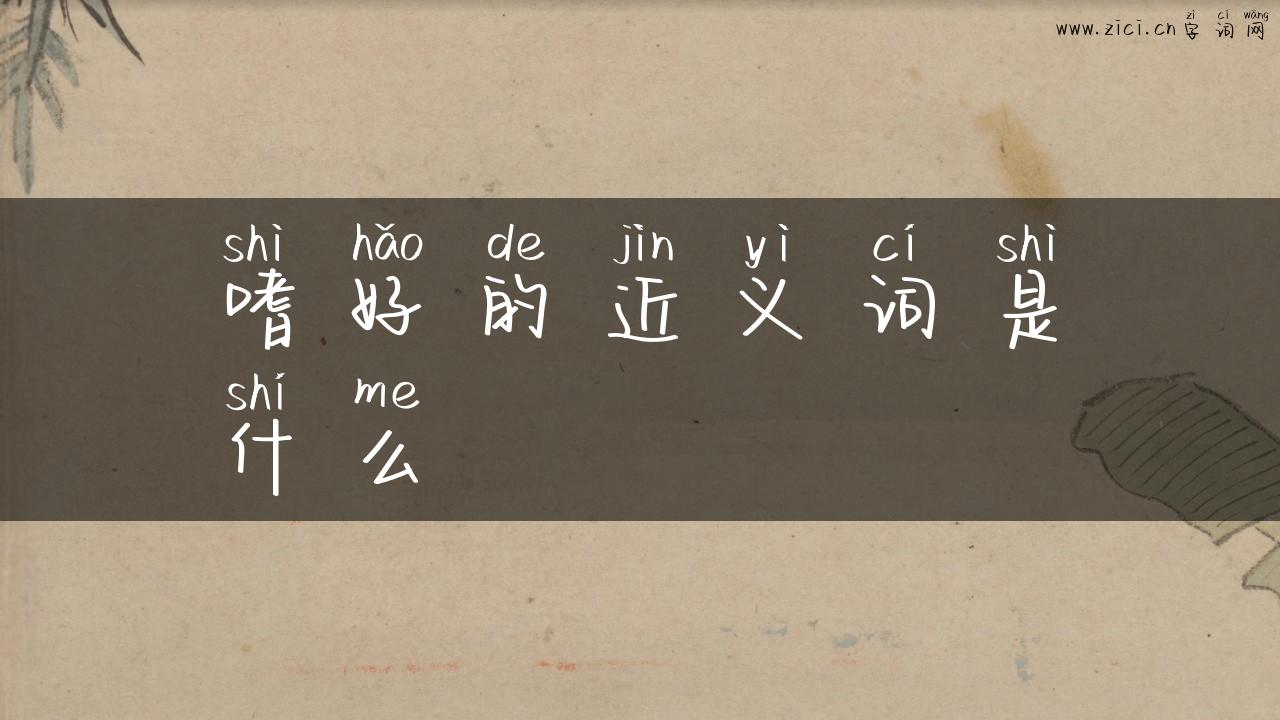 zì cí wǎng
www.zici.cn 字词网
shì hǎo de jìn yì cí shì
嗜好的近义词是
shí me
什么